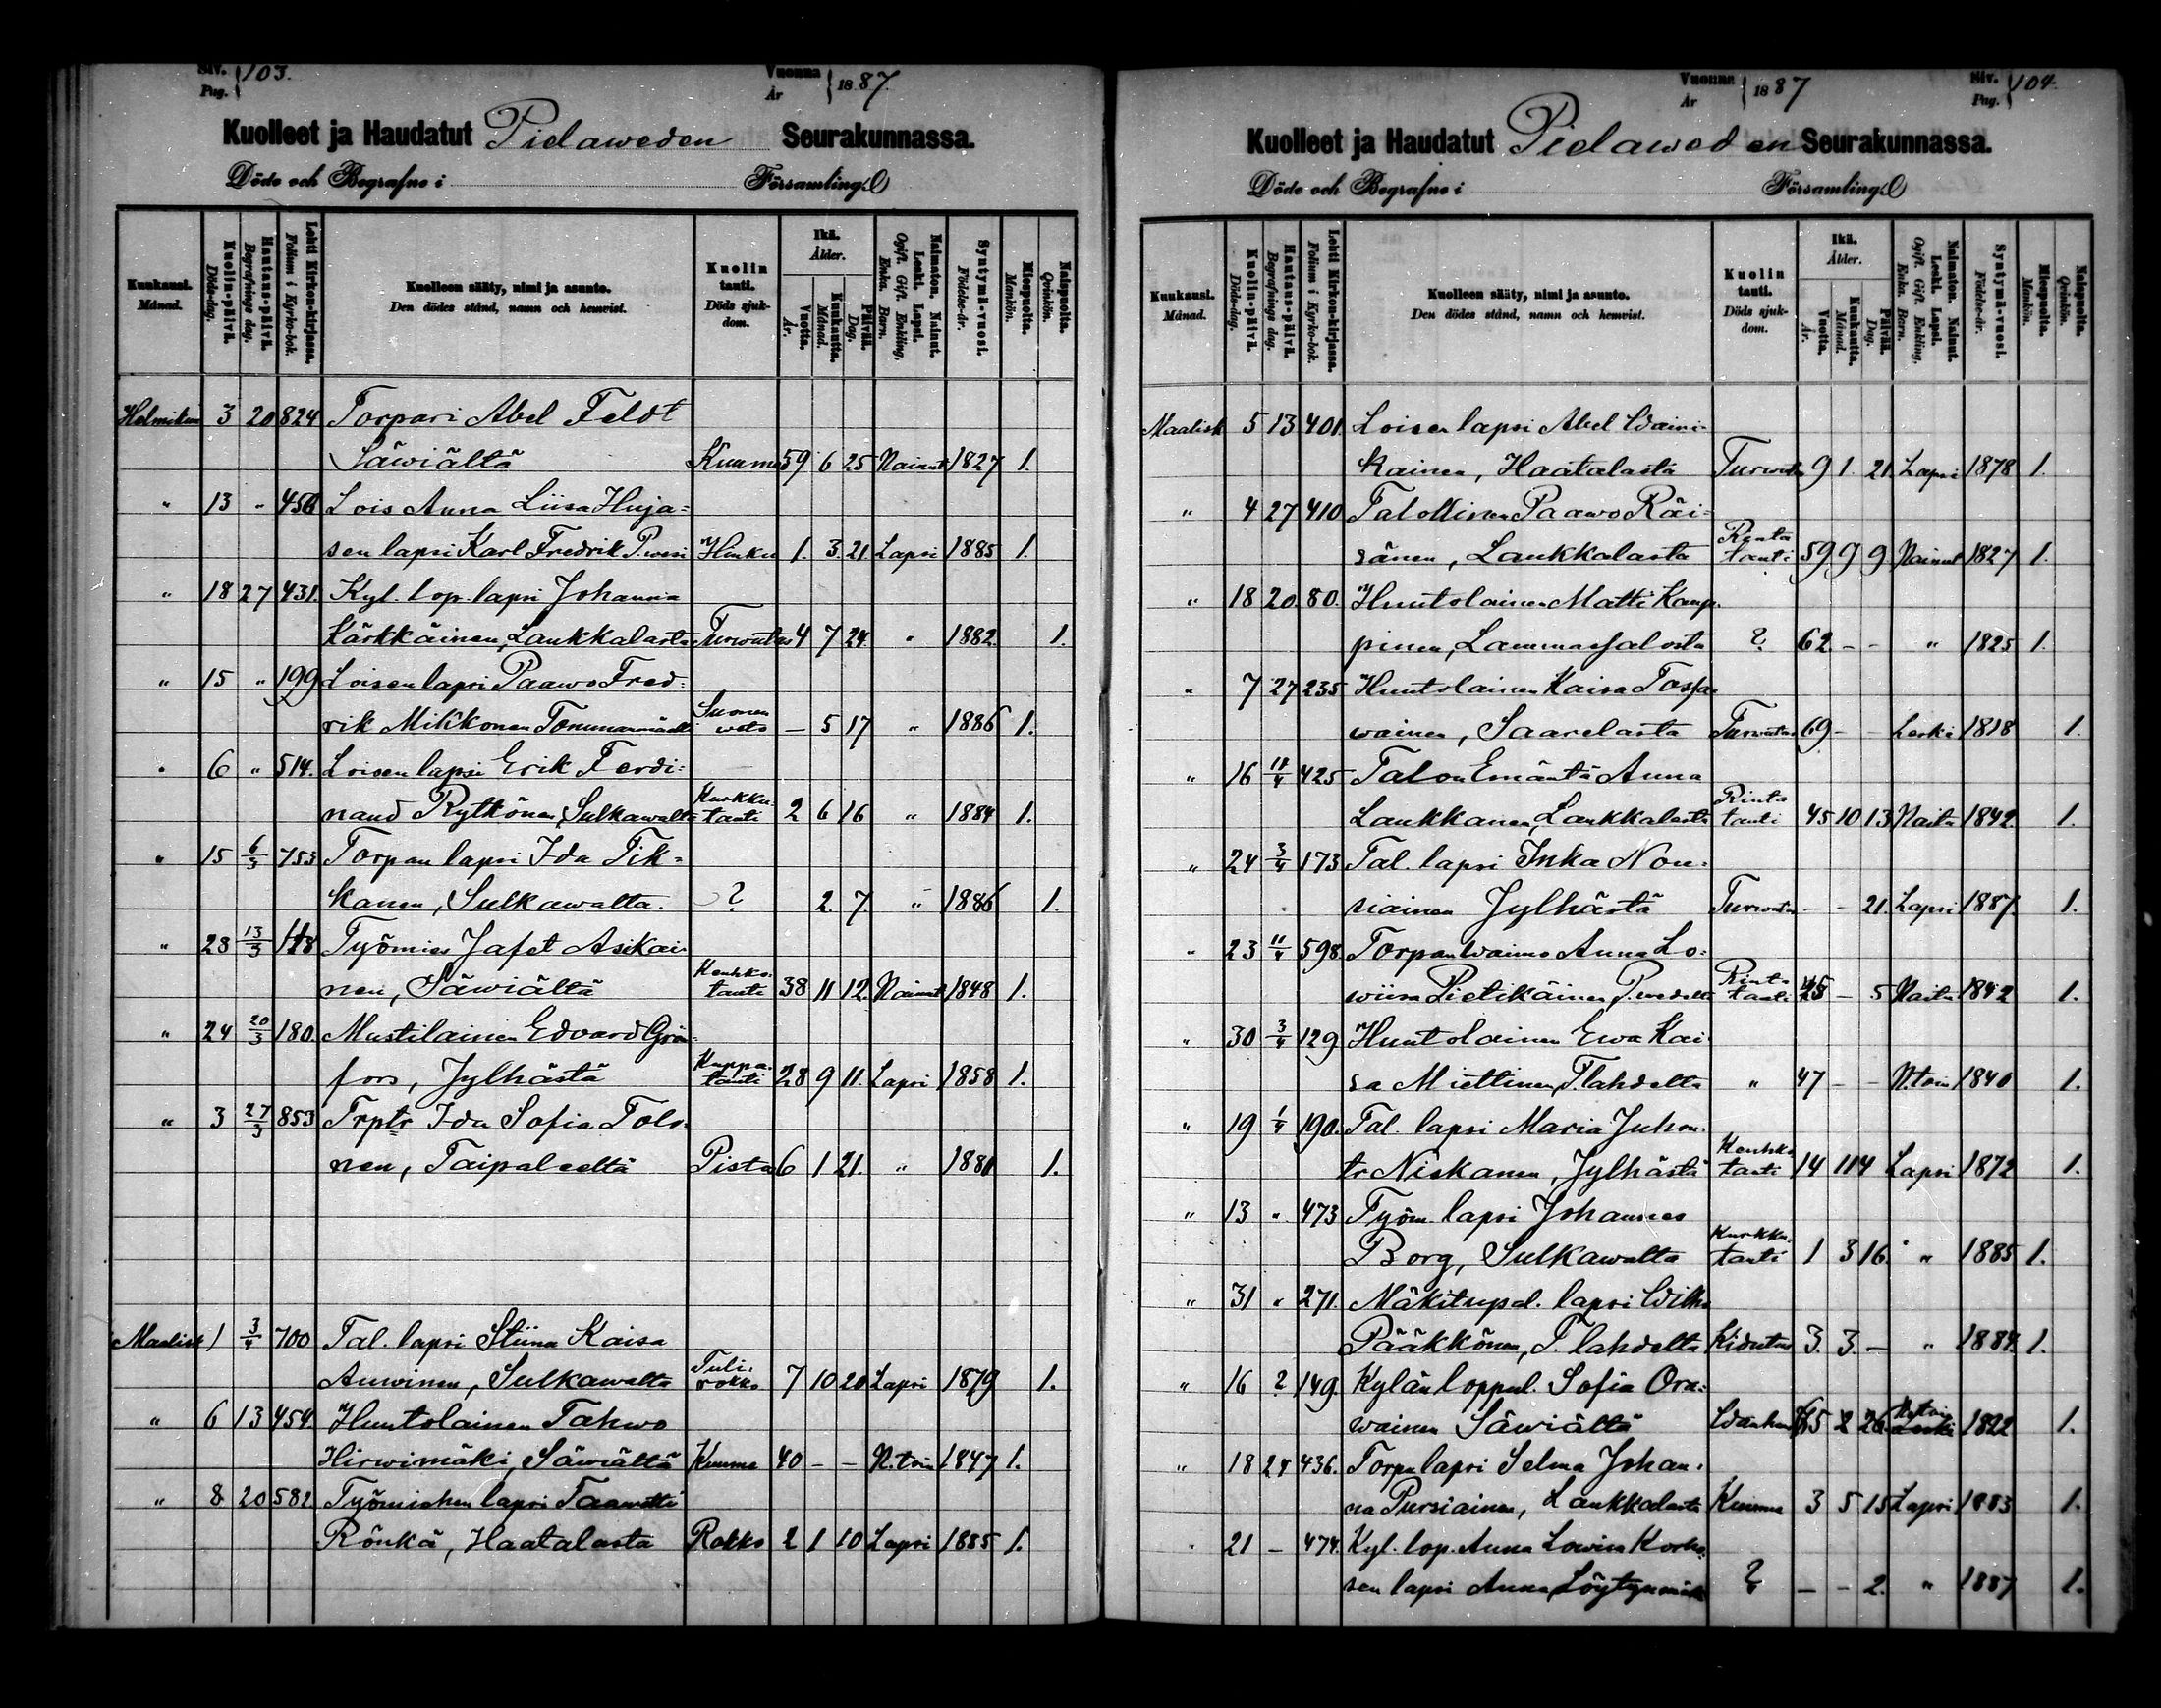 Siv. Pag. } 103.
Vuonna År } 1887.
Kuolleet ja Haudatut Pielaweden Seurakunnassa.
Döde och Begrafne i Församling.
Kuukausi. Månad.
Kuolin-päivä. Döds-dag.
Hautaus-päivä. Begrafnings dag.
Lehti Kirkon-kirjassa. Folium i Kyrko-bok.
Kuolleen sääty, nimi ja asunto. Den dödes stånd, namn och hemvist.
Kuolin tauti. Döds sjukdom.
Ikä. Ålder.
Vuotta. År.
Kuukautta. Månad.
Päivää. Dag.
Naimaton. Nainut. Leski. Lapsi. Ogift. Gift. Enkling, Enka. Barn.
Syntymä-vuosi. Födelse-år.
Miespuolta. Mankön.
Naispuolta. Qvinkön.
Helmikuu 3 20 824 Torpari Abel Feldt
Säwiältä Kuume 59 6 25 Nainut 1827 1.
" 13 " 456 Lois Anna Liisa Huja=
sen lapsi Karl Fredrik P.wesi Hinku 1. 3. 21 Lapsi 1885 1.
" 18 27 431. Kyl. lop. lapsi Johanna
Kärkkäinen, Laukkalasta Turwotus 4 7 24 " 1882. 1.
" 15 " 199 Loisen lapsi Paawo Fred=
rik Mikkonen Tommanmäeltä Suonen weto — 5 17 " 1886 1.
" 6 " 514. Loisen lapsi Erik Ferdi=
nand Rytkönen, Sulkawalta Kurkku tauti 2 6 16 " 1884 1.
" 15 6/3 753 Torpan lapsi Ida Tik=
kanen, Sulkawalta. ? 2. 7. " 1886 1.
" 28 13/3 118 Työmies Jafet Asikai
nen, Säwiältä Keuhko. tauti 38 11 12. Nainut 1848 1.
" 24 20/3 180. Mustilainen Edvard Grön
fors, Jylhästä Kuppa. tauti 28 9 11. Lapsi 1858 1.
" 3 27/3 853 Trptr Ida Sofia Tolo
nen, Taipaleelta Pistos 6 1 21. " 1881 1.
Maalisk 1 3/4 700 Tal. lapsi Stiina Kaisa
Auwinen, Sulkawalta Tuli. rokko 7 10 20 Lapsi 1879 1.
" 6 13 454. Huutolainen Tahwo
Hirwimäki, Säwiältä Kuume 40 — — N.ton 1847 1.
" 8. 20 582 Työmiehen lapsi Taawetti
Rönkä, Haatalasta Rokko 2 1 10 Lapsi 1885 1.
Vuonna År } 1887
Siv. Pag. } 104.
Kuolleet ja Haudatut Pielaweden Seurakunnassa.
Döde och Begrafne i Församling.
Kuukausi. Månad.
Kuolin-päivä. Döds-dag.
Hautaus-päivä. Begrafnings dag.
Lehti Kirkon-kirjassa. Folium i Kyrko-bok.
Kuolleen sääty, nimi ja asunto. Den dödes stånd, namn och hemvist.
Kuolin tauti. Döds sjukdom.
Ikä. Ålder.
Vuotta. År.
Kuukautta. Månad.
Päivää. Dag.
Naimaton. Nainut. Leski. Lapsi. Ogift. Gift. Enkling, Enka. Barn.
Syntymä-vuosi. Födelse-år.
Miespuolta. Mankön.
Naispuolta. Qvinkön.
Maalisk 5 13 401. Loisen lapsi Abel Waini-
kainen, Haatalasta Turwotus 9 1. 21. Lapsi 1878 1.
" 4 27 410 Talollinen Paawo Räi=
sänen, Laukkalasta Rinta tauti 59 9 9 Nainut 1827 1.
" 18 20. 80. Huutolainen Matti Kaup.
pinen, Lammassalosta ? 62. — — " 1825 1.
" 7 27 235 Huutolainen Kaisa Tossa
wainen, Saarelasta Turwotus 69 — — Leski 1818 1.
" 16 11/4 425 Talon Emäntä Anna
Laukkanen, Laukkalasta Rinta tauti 45 10 13 Naitu 1842. 1.
" 24 3/4 173 Tal. lapsi Inka Nou=
siainen Jylhästä Turwotus — — 21. Lapsi 1887. 1.
" 23 11/4 598. Torpan waimo Anna Lo=
wiisa Pietikäinen P.wedeltä Rinta tauti 45 — 5 Naitu 1842 1.
" 30 3/4 129 Huutolainen Ewa Kai
sa Miettinen, P.lahdelta " 47 — — N.ton 1840 1.
" 19 1/4 190. Tal. lapsi Maria Juhon.
tr Niskanen, Jylhästä Keuhko tauti 14 1 14 Lapsi 1872 1.
" 13 " 473 Työm. lapsi Johannes
Borg, Sulkawalta Kurkku. tauti 1 3 16 " 1885 1.
" 31 " 271. Mäkitupal. lapsi Wilh.
Pääkkönen, P. lahdelta Kidutus 3. 3. — " 1884. 1.
" 16 ? 149. Kylän loppul. Sofia Ora=
wainen Säwiältä Wanhuus 65 2 26 N.ton 1822 1.
" 18 24 436. Torp. lapsi Selma Johan.
na Pursiainen, Laukkalasta Kuume 3 5 15 Lapsi 1883 1.
" 21 — 474. Kyl. lop. Anna Lowisa Korho.
sen lapsi Anna, Löytynmäki ? — — 2. " 1887 1.